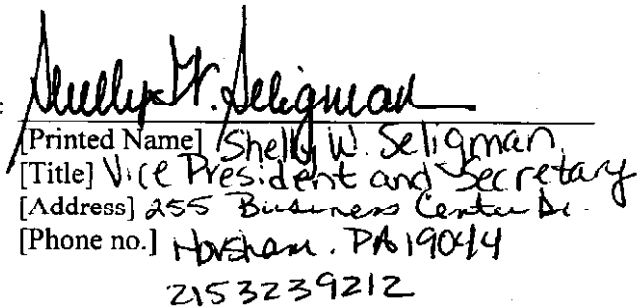 Shelly W. Seligman
[Printed Name] Shelly W. Seligman
[Title] Vice President and Secretary
[Address] 255 Business Center Dr.
[Phone no.] Horsham. PA 19044
2153239212